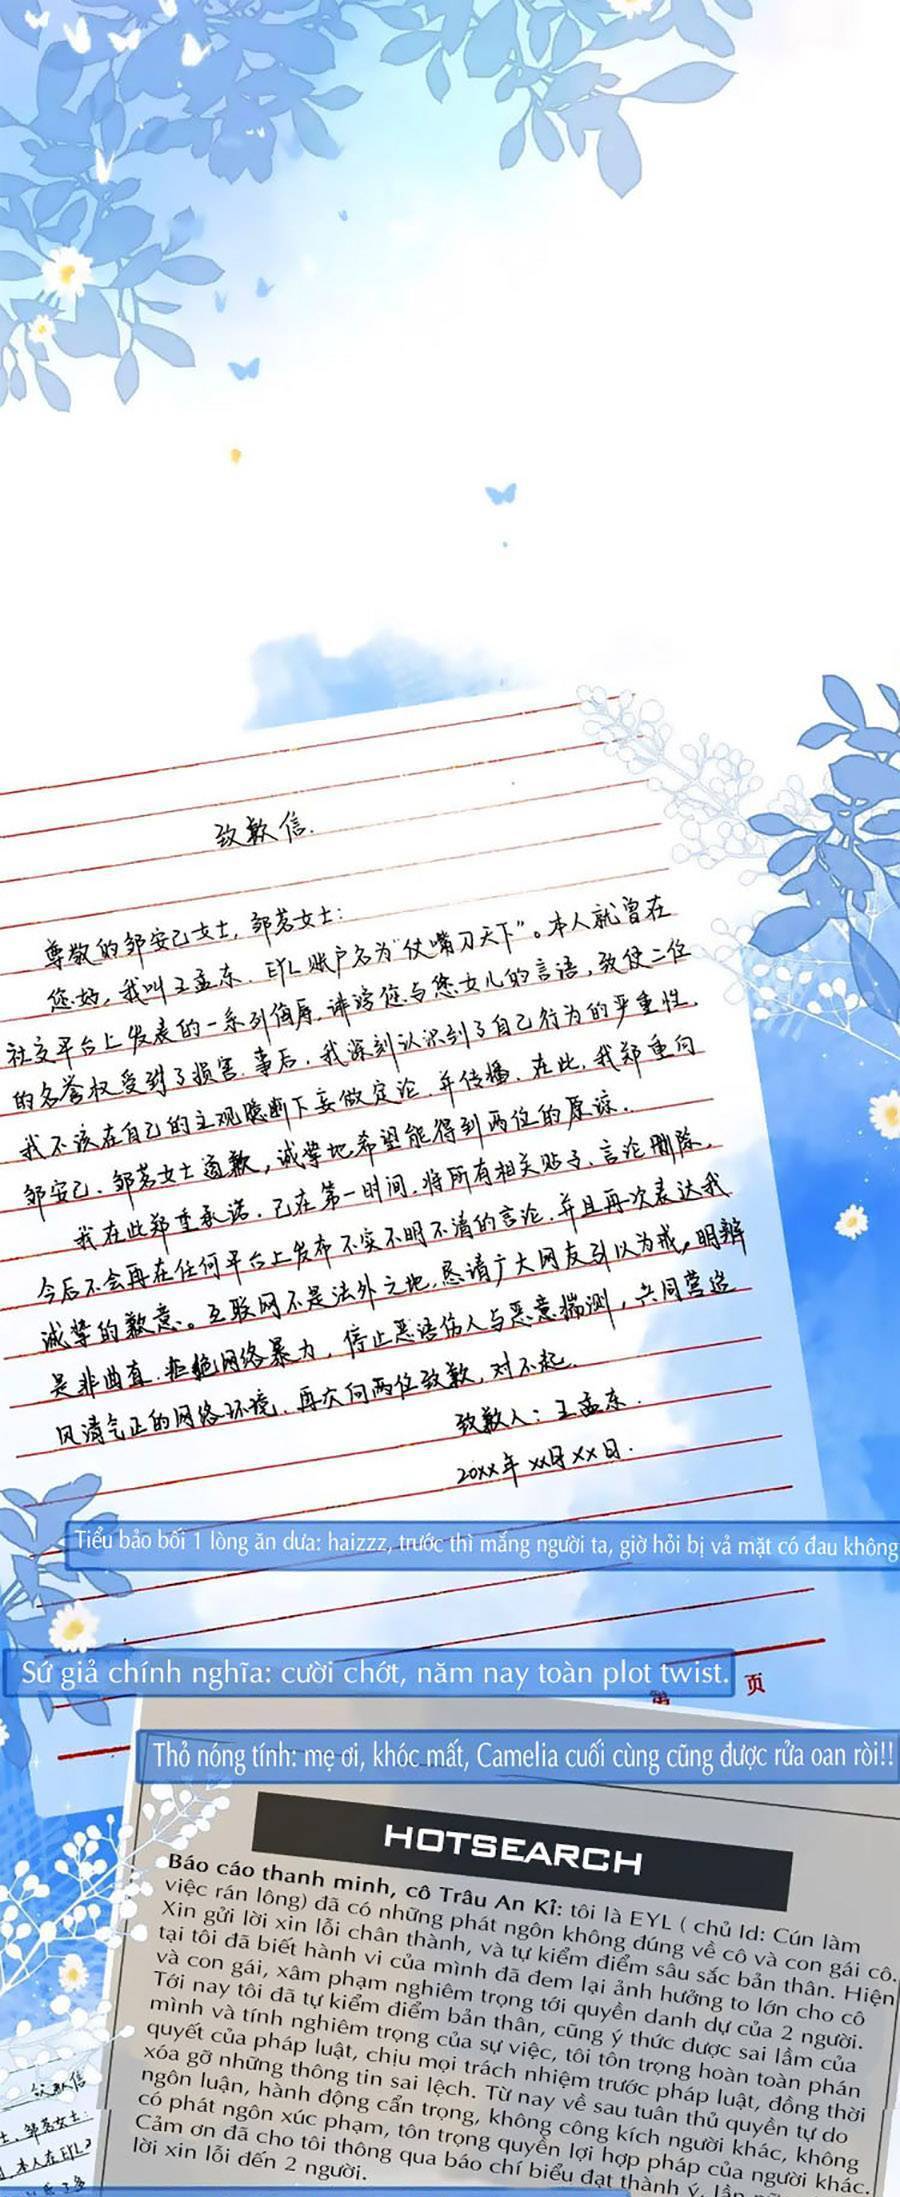 致歉信.
尊敬的邹安己女士，邹茗女士：
您好，我叫王孟东．EYL账户名为“仗嘴刃天下”。本人就曾在
社交平台上发表的一系列侮辱．诽谤您与您女儿的言语，致使二位
的名誉权受到了损害．事后．我深刻认识到了自己行为的严重性．
我不该在自己的主观臆断下妄做定论．并传播．在此，我郑重向
邹安己．邹茗女士道歉，诚挚地希望能得到两位的原谅．
我在此郑重承诺．已在第一时间．将所有相关贴子、言论删除．
今后不会再在任何平台上发布不实不明不清的言论．并且再次表达我
诚挚的歉意。互联网不是法外之地，恳请广大网友引以为戒，明辨
是非曲直．拒绝网络暴力，停止恶语伤人与恶意揣测，共同营造
风清气正的网络环境．再次向两位致歉，对不起．
致歉人：王孟东．
20xx年xx月xx日．
Tiểu bảo bối 1 lòng ăn dưa: haizzz, trước thì mắng người ta, giờ hỏi bị vả mặt có đau không
Sứ giả chính nghĩa: cười chớt, năm nay toàn plot twist.
页
Thỏ nóng tính: mẹ ơi, khóc mất, Camelia cuối cùng cũng được rửa oan ròi!!
HOTSEARCH
Báo cáo thanh minh, cô Trâu An Kỉ: tôi là EYL ( chủ Id: Cún làm
việc rán lông) đã có những phát ngôn không đúng về cô và con gái cô.
Xin gửi lời xin lỗi chân thành, và tự kiểm điểm sâu sắc bản thân. Hiện
tại tôi đã biết hành vi của mình đã đem lại ảnh hưởng to lớn cho cô
và con gái, xâm phạm nghiêm trọng tới quyền danh dự của 2 người.
Tới nay tôi đã tự kiểm điểm bản thân, cũng ý thức được sai lầm của
mình và tính nghiêm trọng của sự việc, tôi tôn trọng hoàn toàn phán
quyết của pháp luật, chịu mọi trách nhiệm trước pháp luật, đồng thời
xóa gỡ những thông tin sai lệch. Từ nay về sau tuân thủ quyền tự do
ngôn luận, hành động cẩn trọng, không công kích người khác, không
có phát ngôn xúc phạm, tôn trọng quyền lợi hợp pháp của người khác.
Cảm ơn đã cho tôi thông qua báo chí biểu đạt thành ý, lần
lời xin lỗi đến 2 người.
致歉信
邹茗女士：
本人在EYL